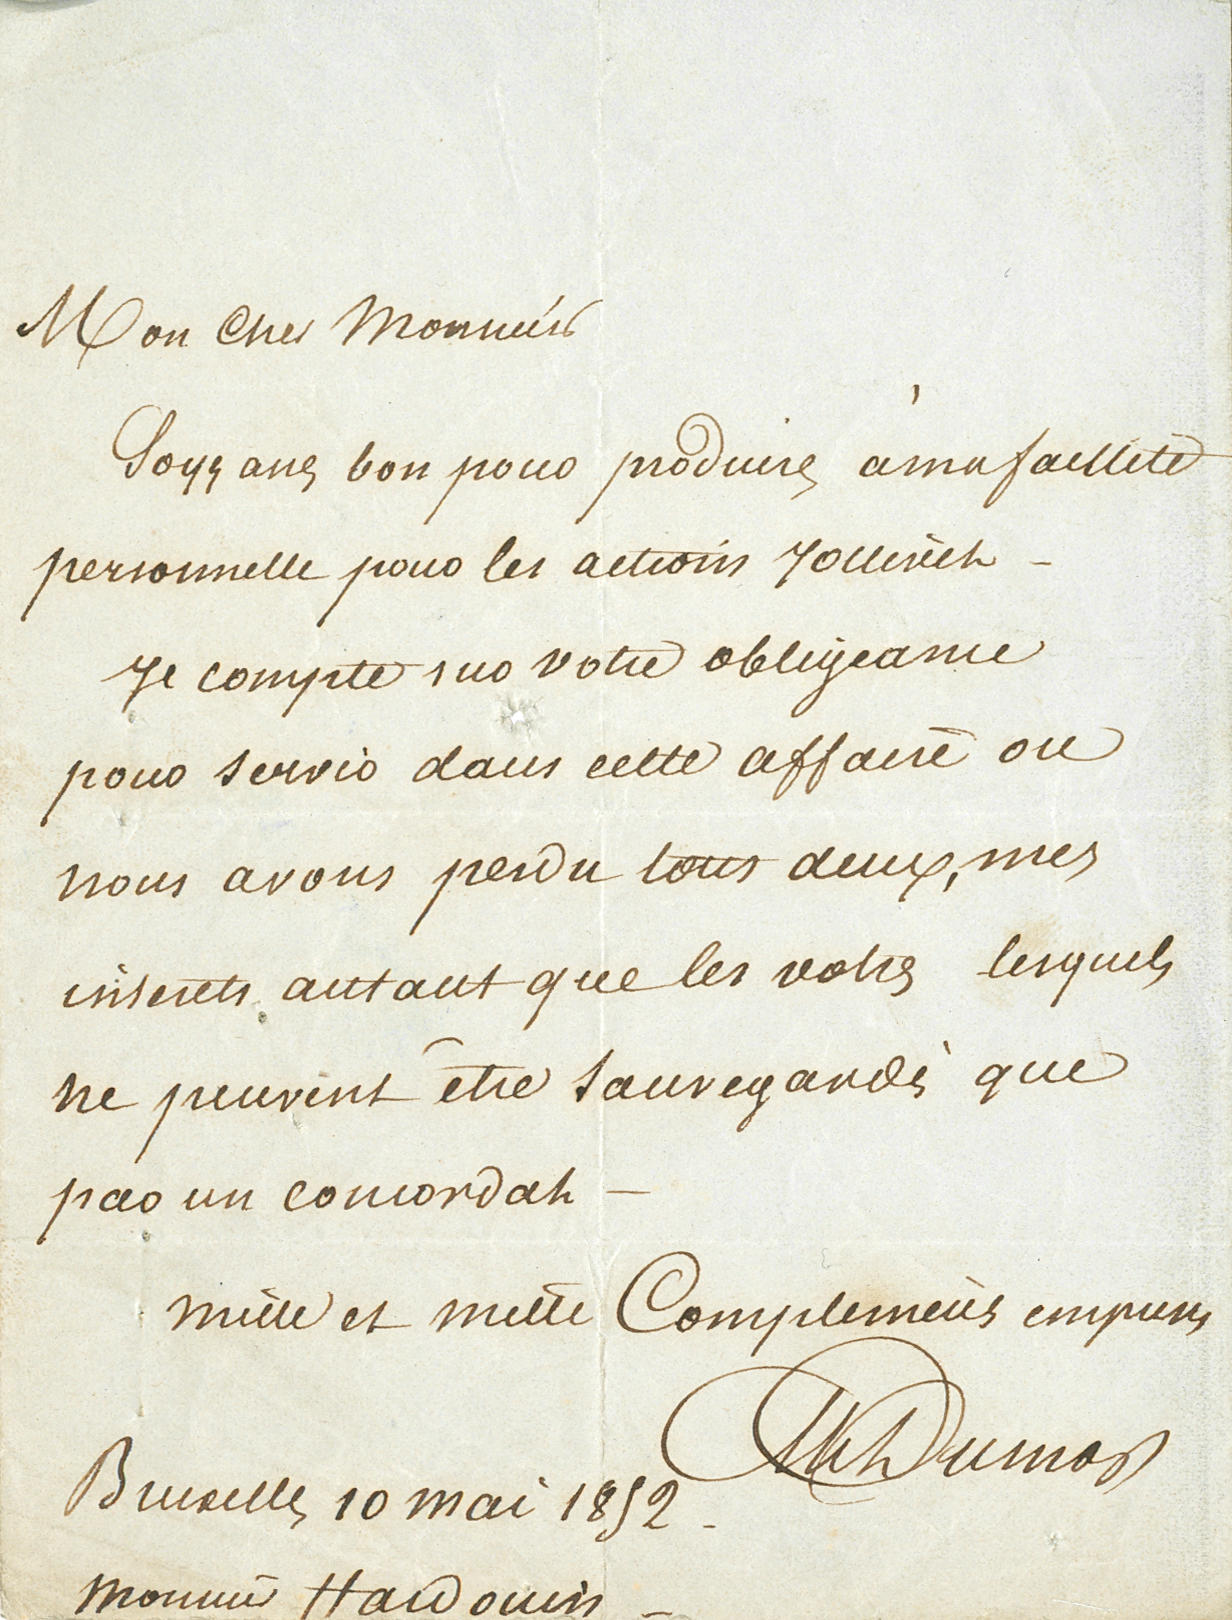 Mon cher Monsieur
Soyez assez bon pour produire à ma faillite
personnelle pour les actions Jollivet –
Je compte sur votre obligeance
pour servir dans cette affaire ou
nous avons perdu tous deux, mes
interets autant que les votres lesquels
ne peuvent être sauvegardés que
par un concordat –
mille et mille Compliments empressés
Alex Dumas
Bruxelles 10 mai 1852 –
Monsieur Hardouin –